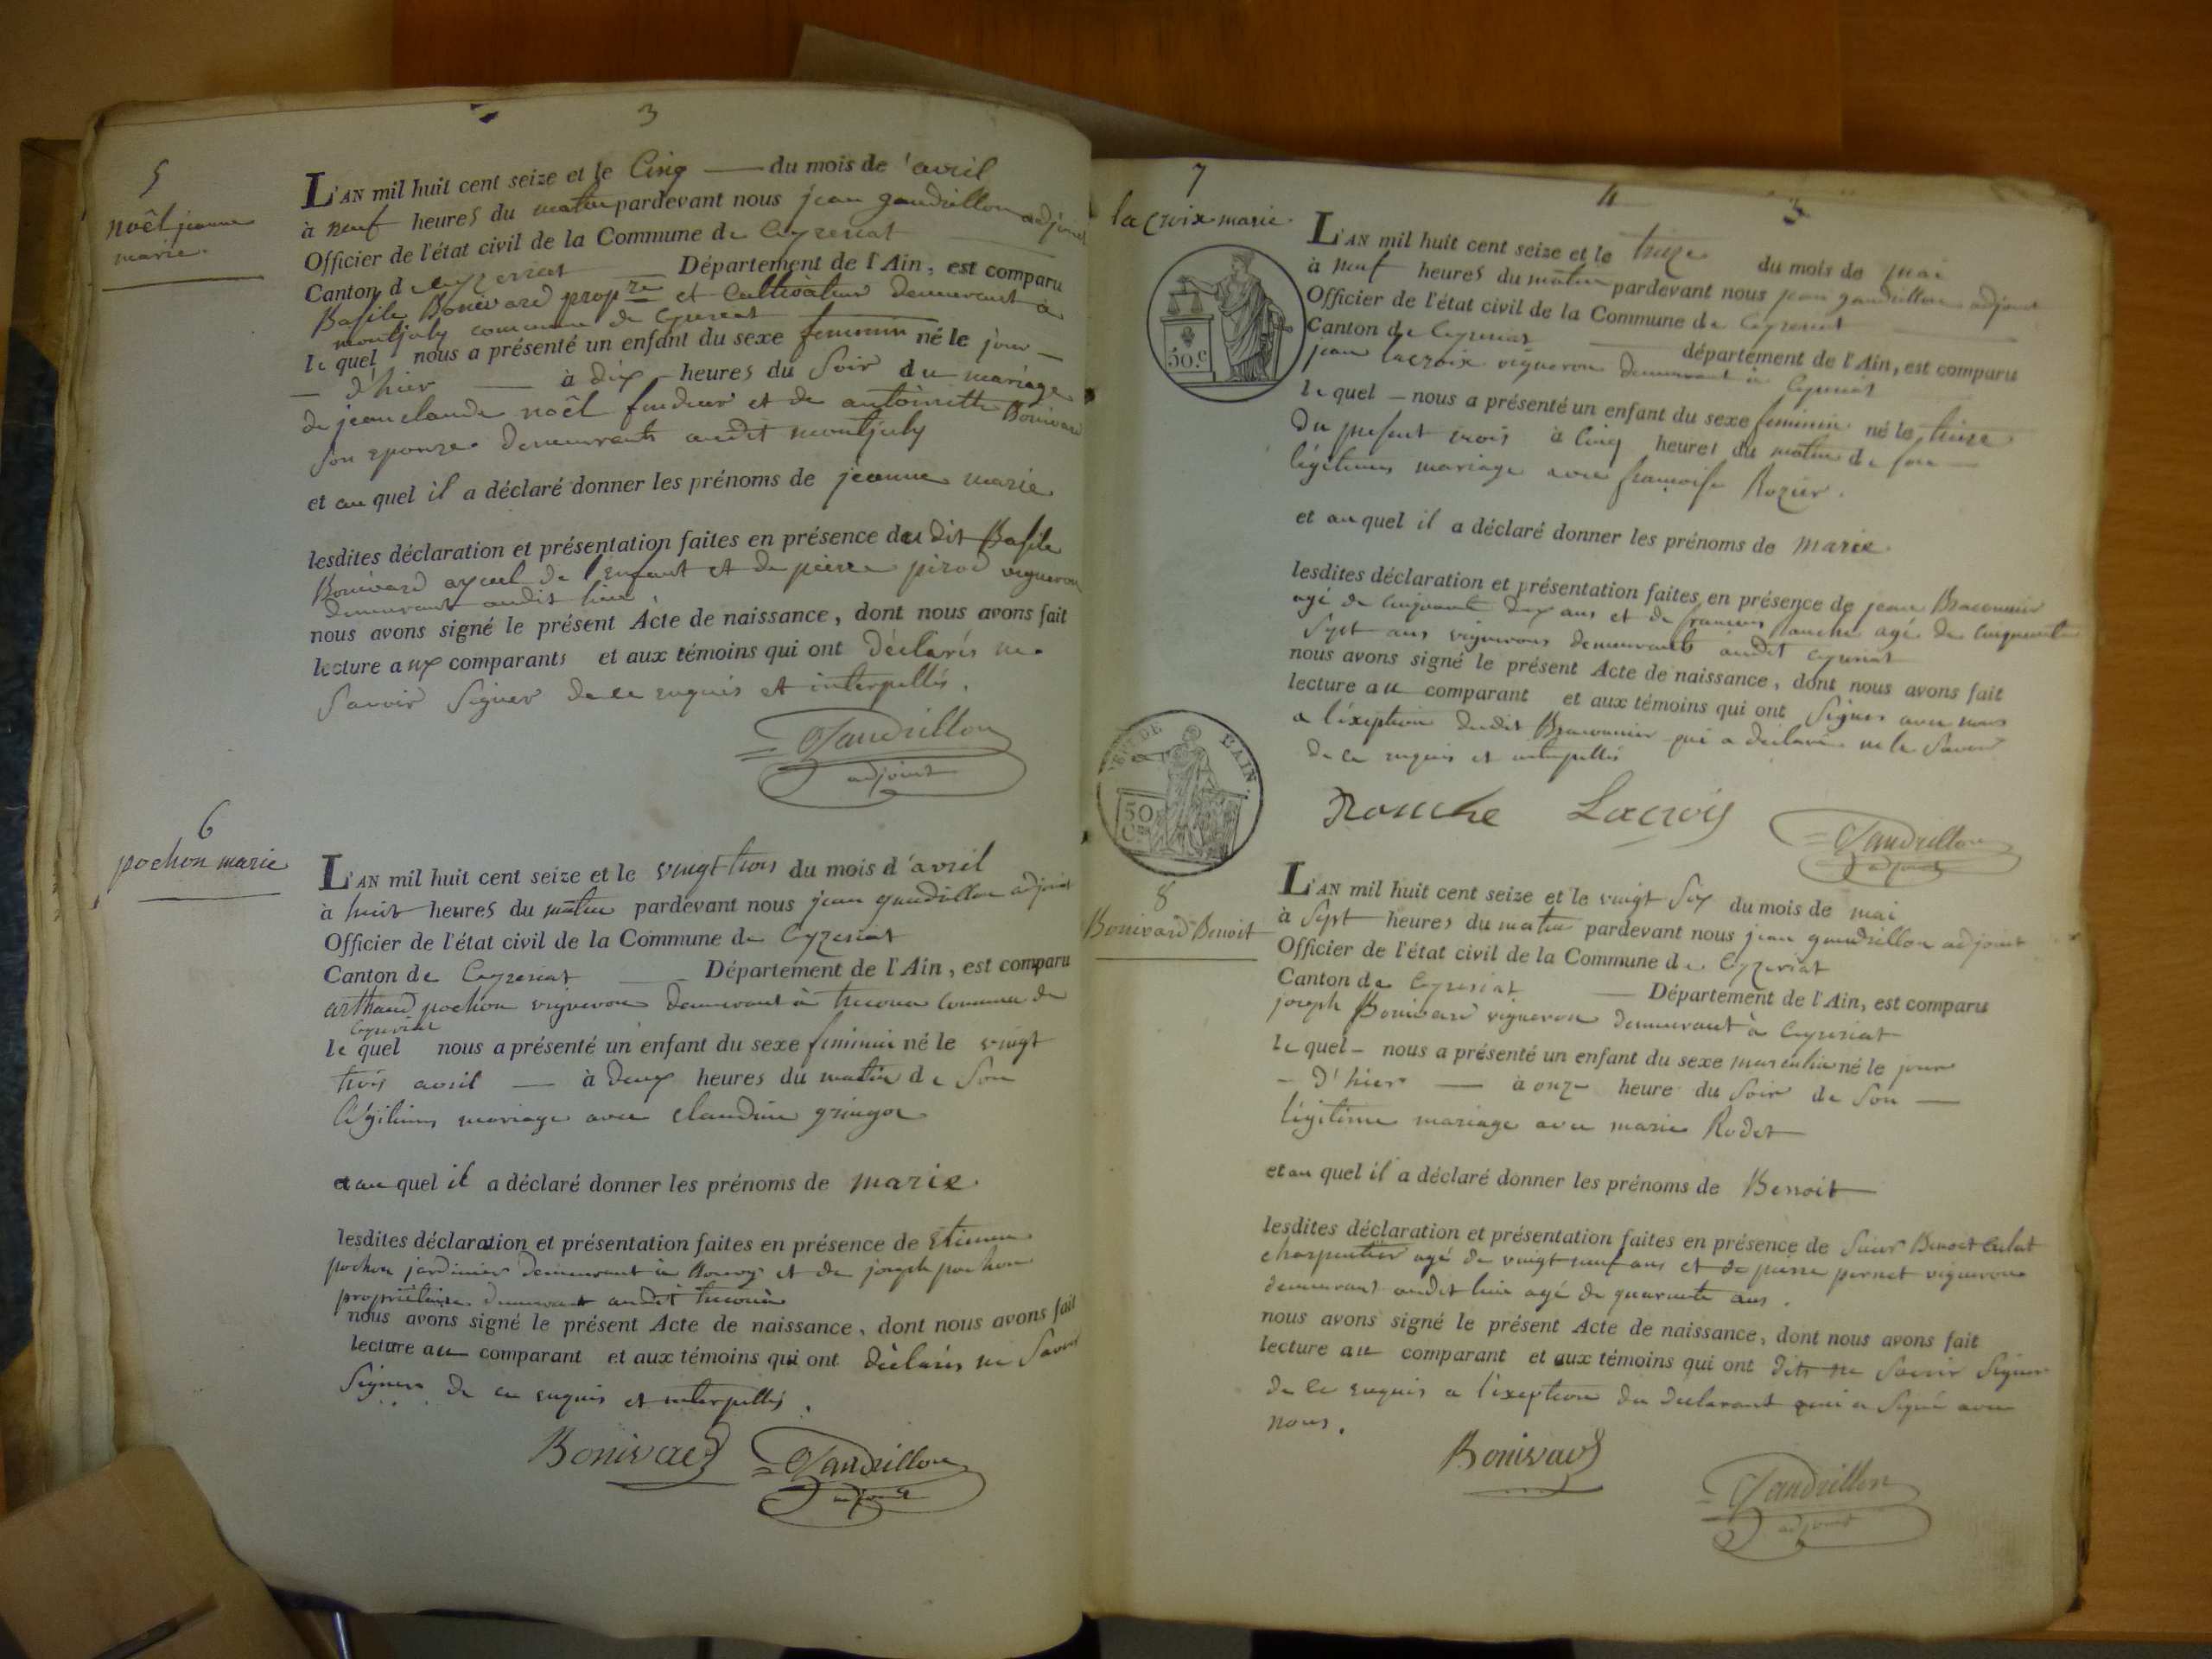 3
5
noël jeanne
marie.
L'AN mil huit cent seize et le Cinq — du mois de avril
à neuf heures du matin pardevant nous jean gaudrillon adjoint
Officier de l'état civil de la Commune de Ceyzeriat
Canton de Ceyzeriat — Département de l'Ain, est comparu
Basile Bonivard prop.re et Cultivateur demeurant à
montjuly commune de Ceyzeriat
le quel nous a présenté un enfant du sexe feminin né le jour —
— d'hier — à dix heures du Soir du mariage
de jean claude noël fondeur et de antoinette Bonivard
Son epouse demeurants audit montjuly
et au quel il a déclaré donner les prénoms de jeanne marie
lesdites déclaration et présentation faites en présence du dit Basile
Bonivard ayeul de l'enfant et de pierre pirod vigneron
demeurant audit lieu
nous avons signé le présent Acte de naissance, dont nous avons fait
lecture aux comparants et aux témoins qui ont déclarés ne
Savoir Signer de ce enquis et interpellés.
Gaudrillon
adjoint
6
pochon marie
L'AN mil huit cent seize et le vingt trois du mois d'avril
à huit heures du matin pardevant nous jean gaudrillon adjoint
Officier de l'état civil de la Commune de Ceyzeriat
Canton de Ceyzeriat — Département de l'Ain, est comparu
arthaud pochon vigneron demeurant à commune de
Ceyzeriat
le quel nous a présenté un enfant du sexe feminin né le vingt
trois avril — à deux heures du matin de Son
légitime mariage avec claudine gringoz
et au quel il a déclaré donner les prénoms de marie
lesdites déclaration et présentation faites en présence de Etienne
pochon jardinier demeurant à Bourg et de joseph pochon
propriétaire demeurant audit
nous avons signé le présent Acte de naissance, dont nous avons fait
lecture au comparant et aux témoins qui ont déclarés ne Savoir
Signer de ce enquis et interpellés.
Bonivard Gaudrillon
adjoint
4
7
la croix marie
50.c
L'AN mil huit cent seize et le treize du mois de mai
à neuf heures du matin pardevant nous jean gaudrillon adjoint
Officier de l'état civil de la Commune de Ceyzeriat
Canton de Ceyzeriat — département de l'Ain, est comparu
jean lacroix vigneron demeurant à Ceyzeriat
le quel — nous a présenté un enfant du sexe feminin né le treize
du present mois à Cinq heures du matin de Son —
légitime mariage avec françoise Rozier.
et au quel il a déclaré donner les prénoms de marie.
lesdites déclaration et présentation faites en présence de jean Braconnier
agé de Cinquante deux ans et de françois agé de Cinquante
Sept ans vignerons demeurants audit Ceyzeriat
nous avons signé le présent Acte de naissance, dont nous avons fait
lecture au comparant et aux témoins qui ont Signés avec nous
a l'exeption dudit Braconnier qui a déclaré ne le Savoir
de ce enquis et interpellés
Lacroix Gaudrillon
adjoint
DEPT DE L'AIN.
50
Ces
8
Bonivard Benoit
L'AN mil huit cent seize et le vingt Six du mois de mai
à Sept heures du matin pardevant nous jean gaudrillon adjoint
Officier de l'état civil de la Commune de Ceyzeriat
Canton de Ceyzeriat — Département de l'Ain, est comparu
joseph Bonivard vigneron demeurant à Ceyzeriat
le quel — nous a présenté un enfant du sexe masculin né le jour
— d'hier — à onze heure du Soir de Son —
légitime mariage avec marie Rodet
et au quel il a déclaré donner les prénoms de Benoit
lesdites déclaration et présentation faites en présence de Sieur Benoit
charpentier agé de vingt neuf ans et de pierre pernet vigneron
demeurant audit lieu agé de quarante ans.
nous avons signé le présent Acte de naissance, dont nous avons fait
lecture au comparant et aux témoins qui ont dits ne Savoir Signer
de ce enquis a l'exeption du declarant qui a Signé avec
nous.
Bonivard
Gaudrillon
adjoint